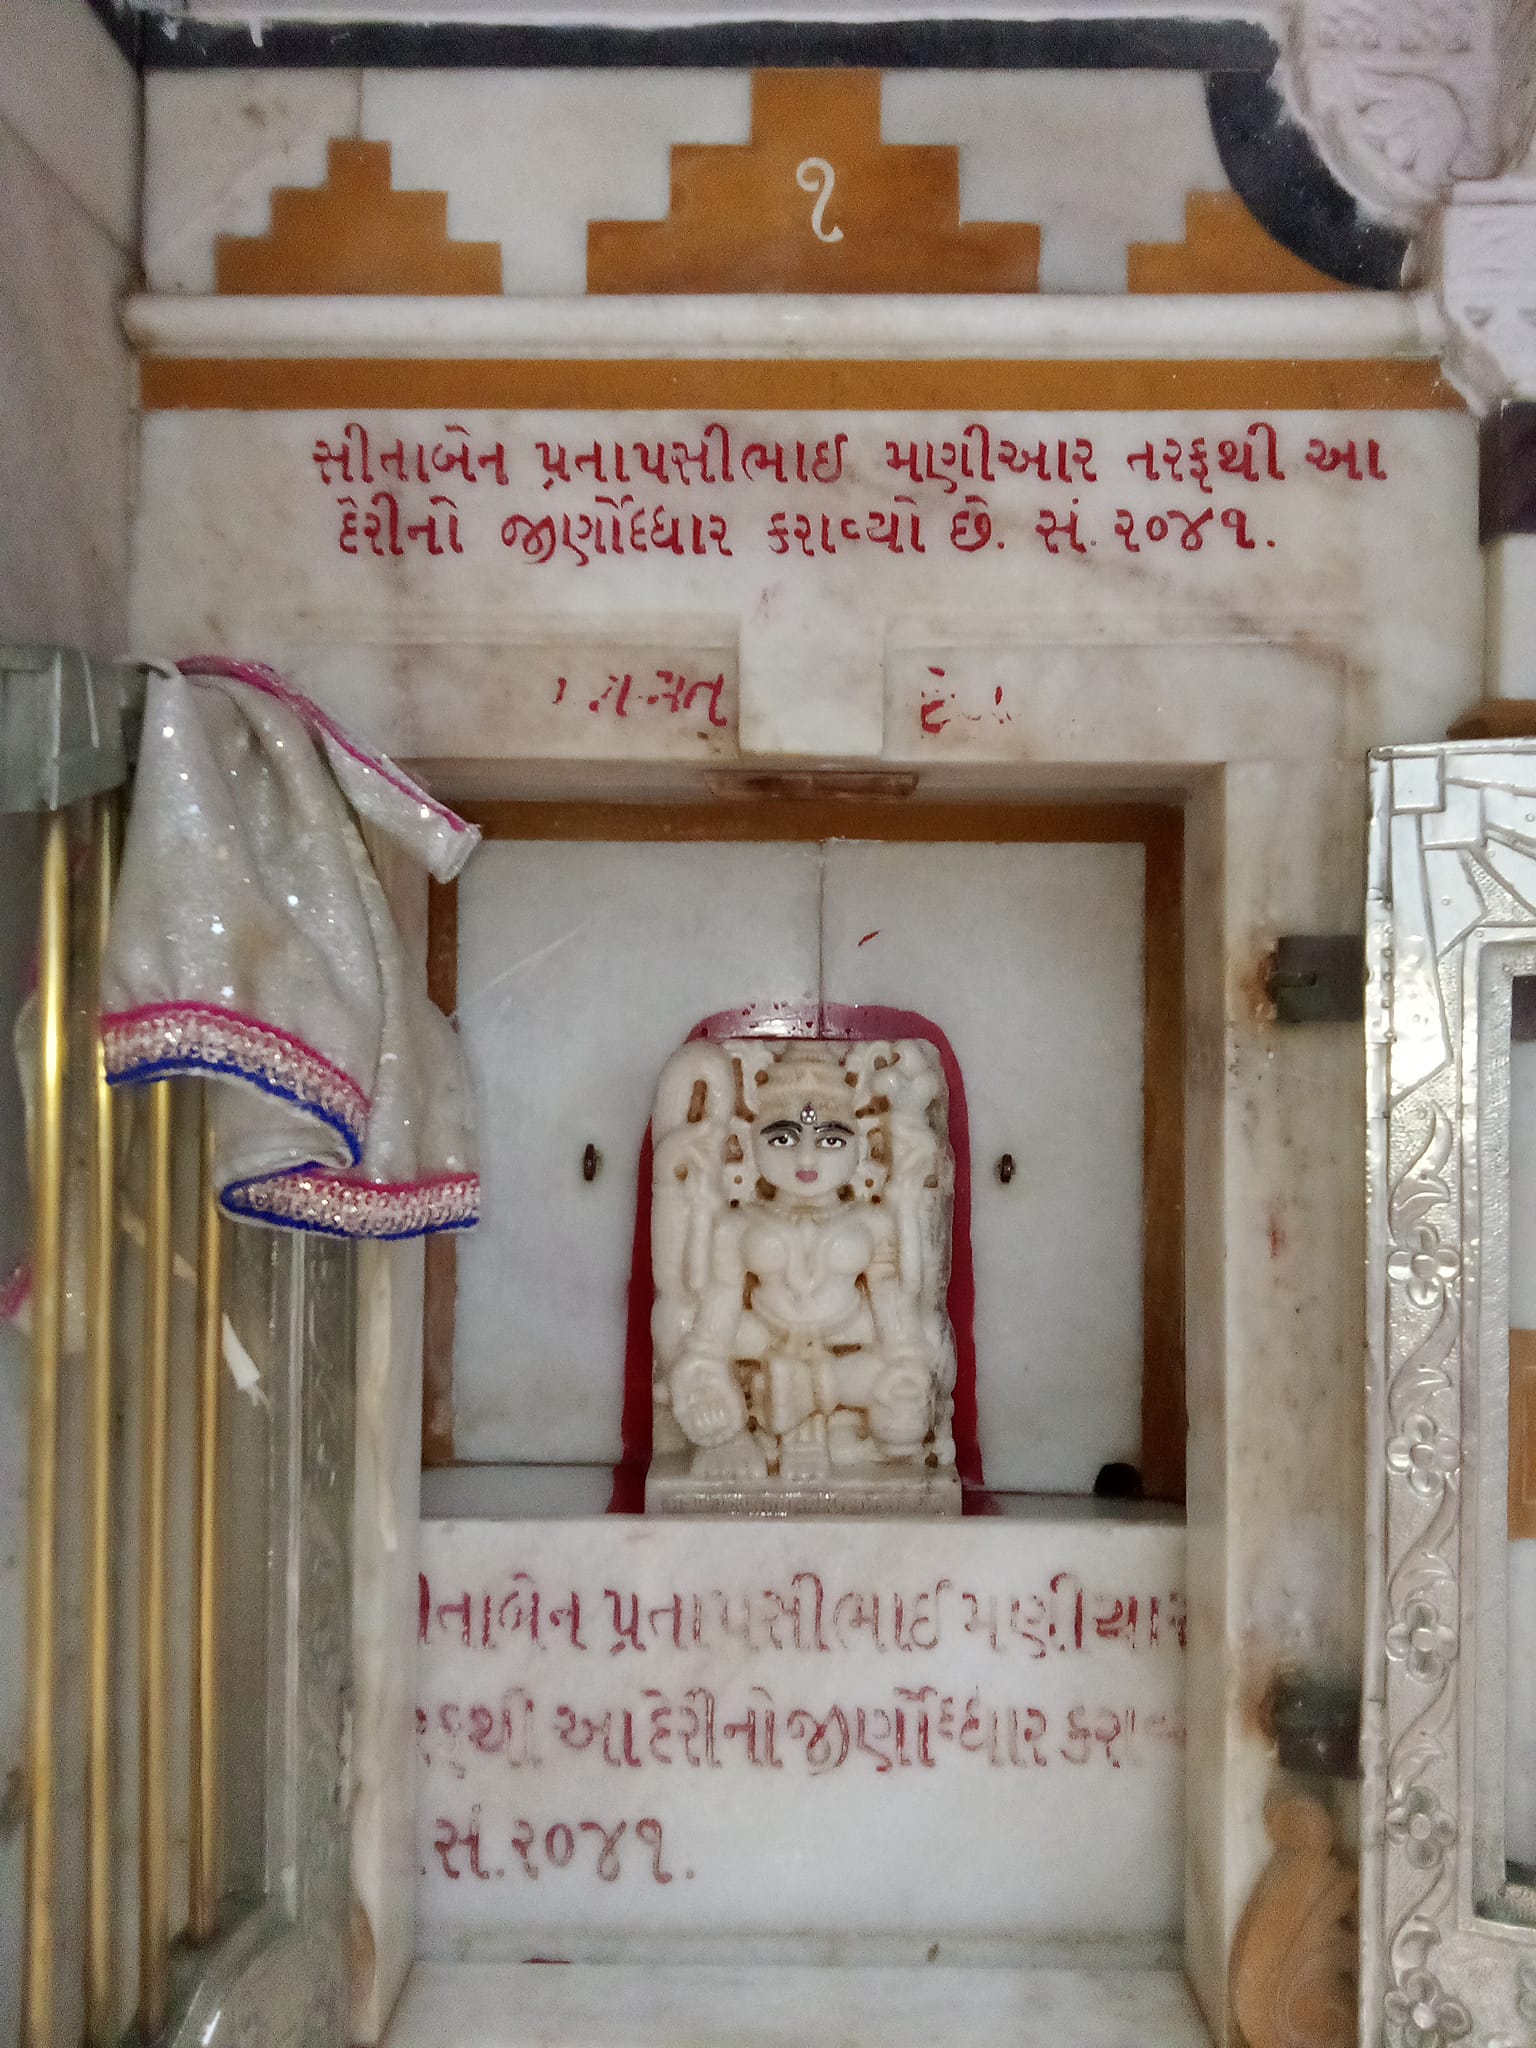 ૧
સીતાબેન પ્રતાપસીભાઇ મણીઆર તરફથી આ
દેરીનો જીર્ણોદ્ધાર કરાવ્યો છે. સં. ૨૦૪૧.
ીતાબેન પ્રતાપસીભાઈ મણીયાર
રફથી આ દેરીનો જીર્ણોદ્ધાર કરાવ્ય
.સં.૨૦૪૧.